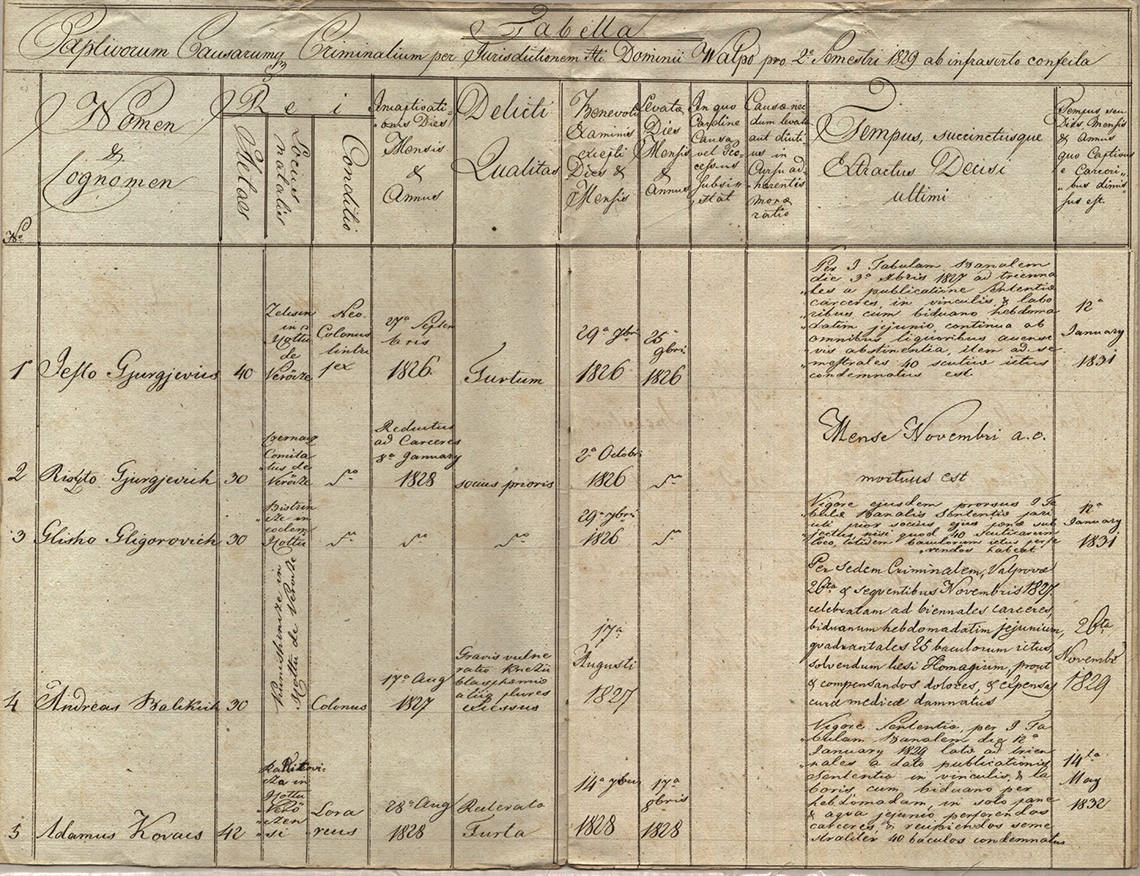 Tabella
Captivorum Causarumq Criminalium per Jurisdictionem Alti Dominii Walpo pro 2º Semestri 1829 ab infraserto confecta
Nº
Nomen
&
Cognomen
Rei
Aetas
Locus
natalis
Conditio
Incaptivati
onis Dies
Mensis
&
Annus
Delicti
Qualitas
Benevoli
Examinis
Dies &
Mensis
Levata
Dies
Mensis
&
Annus
In quo
Cardine
Causa
vel Pro
cessus
subsi
stat
Causa nec
dum levatae
aut diuti
us in
Cursu ad
haerentis
morae
ratio
Tempus, succinctusque
Extractus Decisi
ultimi
Tempus seu
Dies Mensis
& Annus
quo Captivus
e Carceri
bus dimis
sus est
1
Jefto Gjurgjevics
40
in
Cottu
de
Verőcze
Colonus
27ª Septem
bris
1826
Furtum
29ª 9bri
1826
25
9bri
1826
Per I Tabulam Banalem
die 3ª Xbris 1827 ad trienna
les a publicatione Sententiae
carceres, in vinculis, & labo
ribus cum biduano hebdoma
datim jejunio, continua ab
omnibus liquoribus
abstinentia, item ad se
mestrales 40 scuticae ictus
condemnatus est
12ª
January
1831
2
Riszto Gjurgjevich
30
Comita
tus de
Verőcze
Dº
Reductus
ad Carceres
8ª January
1828
socius prioris
2ª Octobr
1826
Dº
Mense Novembri a.c.
mortuus est
3
Glisha Gligorovich
30
in
eodem
Cottu
Dº
Dº
Dº
29ª 9bri
1826
Dº
Vigore ejusdem prorsus I Ta
bulae Banalis Sententiae pari
uti prior socius ejus poenae sub
jectus, nisi quod 40 scuticarum
loco, totidem baculorum ictus perfe
rendos habeat
12ª
January
1831
4
Andreas Balikich
30
in
Cottu de Verőcze
Colonus
17ª Aug
1827
Gravis vulne
ratio Knezii
blasphemia
aliiq plures
Excessus
17ª
Augusti
1827
Per Sedem Criminalem, Valpovae
26ta & sequentibus Novembris 1827
celebratam ad biennales carceres,
biduanum hebdomadatim jejunium,
quadrantales 25 baculorum ictus,
solvendum laesi Homagium, prout
& compensandos dolores, & expensas
curae medicae damnatus
26ta
Novembr
1829
5
Adamus Kovacs
42
in
Cottu
Verő
czen
si
Lora
reus
28ª Aug
1828
Reiterata
Furta
14ª 9bris
1828
17ª
9bris
1828
Vigore Sententiae, per I Ta
bulam Banalem die 12ª
January 1829 latae ad trien
nales a dato publicationis
Sententiae in vinculis, & la
boris cum biduano per
hebdomadam, in solo pane
& aqua jejunio perferendos
carceres, & recipiendos seme
straliter 40 baculos condemnatus
14ta
May
1832